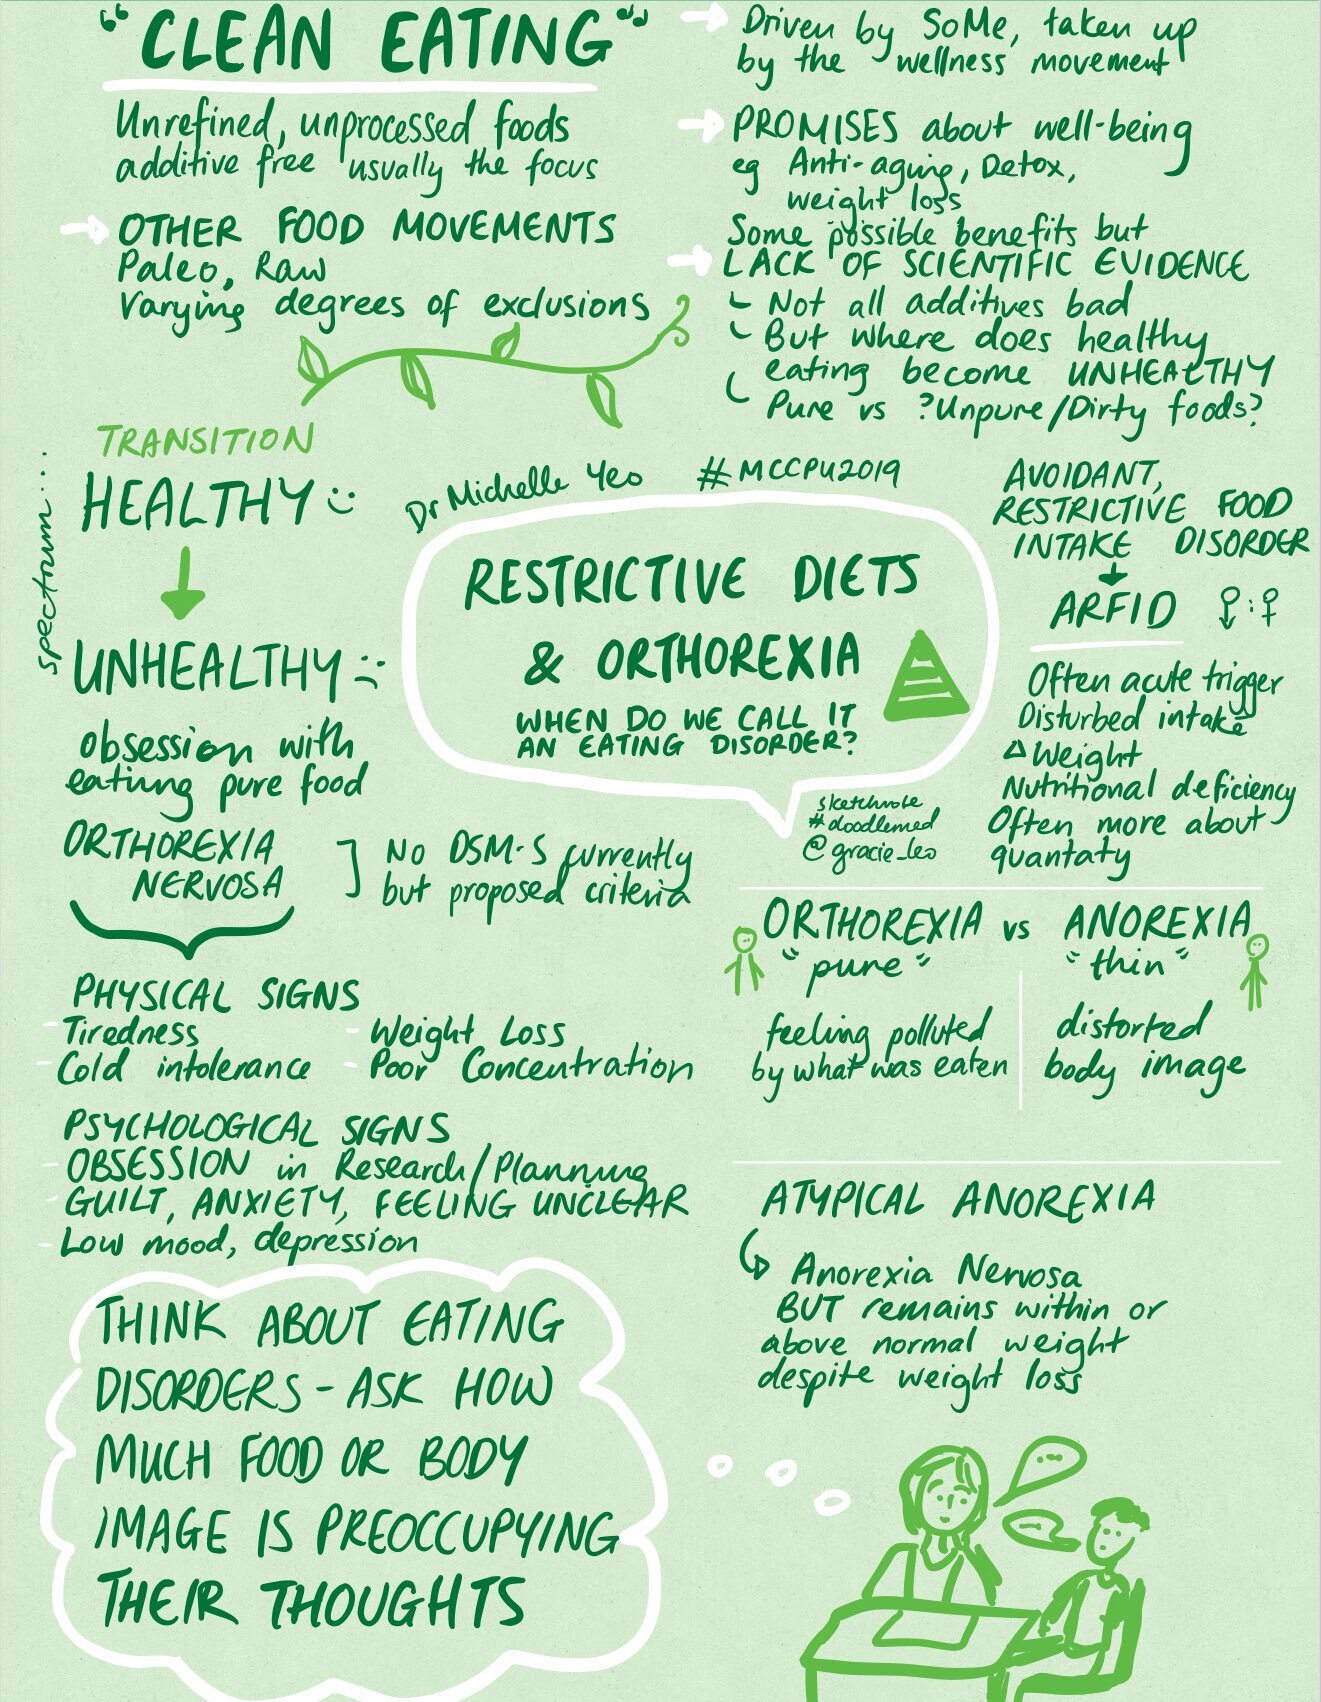 "CLEAN EATING"
Unrefined, unprocessed foods
additive free usually the focus
OTHER FOOD MOVEMENTS
Paleo, Raw
Varying degrees of exclusions
Driven by SoMe, taken up
by the wellness movement
PROMISES about well-being
eg Anti-aging, Detox,
weight loss
Some possible benefits but
LACK OF SCIENTIFIC EVIDENCE
Not all additives bad
But where does healthy
eating become UNHEALTHY
Pure vs ?Unpure/Dirty foods?
spectrum...
TRANSITION
HEALTHY
UNHEALTHY
obsession with
eating pure food
ORTHOREXIA
NERVOSA
No DSM-5 currently
but proposed criteria
Dr Michelle Yeo #MCCPU2019
RESTRICTIVE DIETS
& ORTHOREXIA
WHEN DO WE CALL IT
AN EATING DISORDER?
sketchnote
#doodlemed
@gracie_leo
AVOIDANT,
RESTRICTIVE FOOD
INTAKE DISORDER
ARFID ♂:♀
Often acute trigger
Disturbed intake
Δ Weight
Nutritional deficiency
Often more about
quantaty
PHYSICAL SIGNS
- Tiredness - Weight Loss
- Cold intolerance - Poor Concentration
PSYCHOLOGICAL SIGNS
- OBSESSION in Research/Planning
- GUILT, ANXIETY, FEELING UNCLEAR
- Low mood, depression
ORTHOREXIA vs ANOREXIA
"pure" "thin"
feeling polluted
by what was eaten
distorted
body image
ATYPICAL ANOREXIA
Anorexia Nervosa
BUT remains within or
above normal weight
despite weight loss
THINK ABOUT EATING
DISORDERS - ASK HOW
MUCH FOOD OR BODY
IMAGE IS PREOCCUPYING
THEIR THOUGHTS